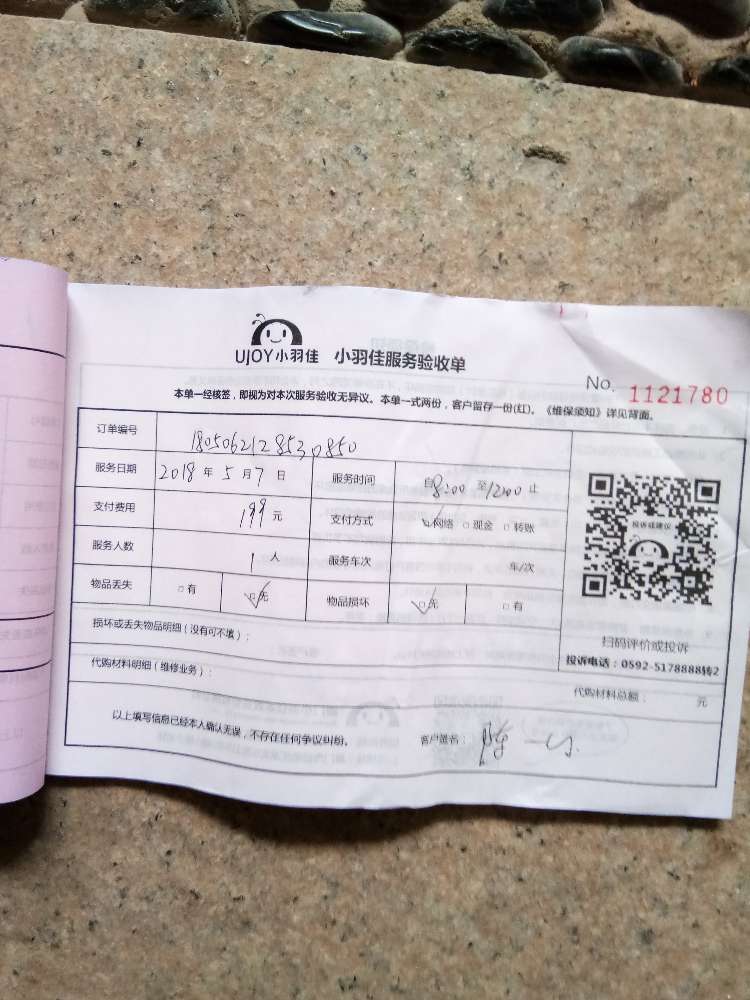 UJOY小羽佳 小羽佳服务验收单
No. 1121780
本单一经核签，即视为对本次服务验收无异议。本单一式两份，客户留存一份(红)。《维保须知》详见背面。
订单编号 180506212853,0850
服务日期 2018 年 5 月 7 日 服务时间 自 8:00 至 12:00 止
支付费用 199 元 支付方式 □网络 □现金 □转账
服务人数 1 人 服务车次 车/次
物品丢失 □有 □无 物品损坏 □无 □有
投诉或建议
扫码评价或投诉
投诉电话：0592-5178888转2
损坏或丢失物品明细（没有可不填）：
代购材料明细（维修业务）： 代购材料总额： 元
以上填写信息已经本人确认无误，不存在任何争议纠纷。 客户签名： 陈